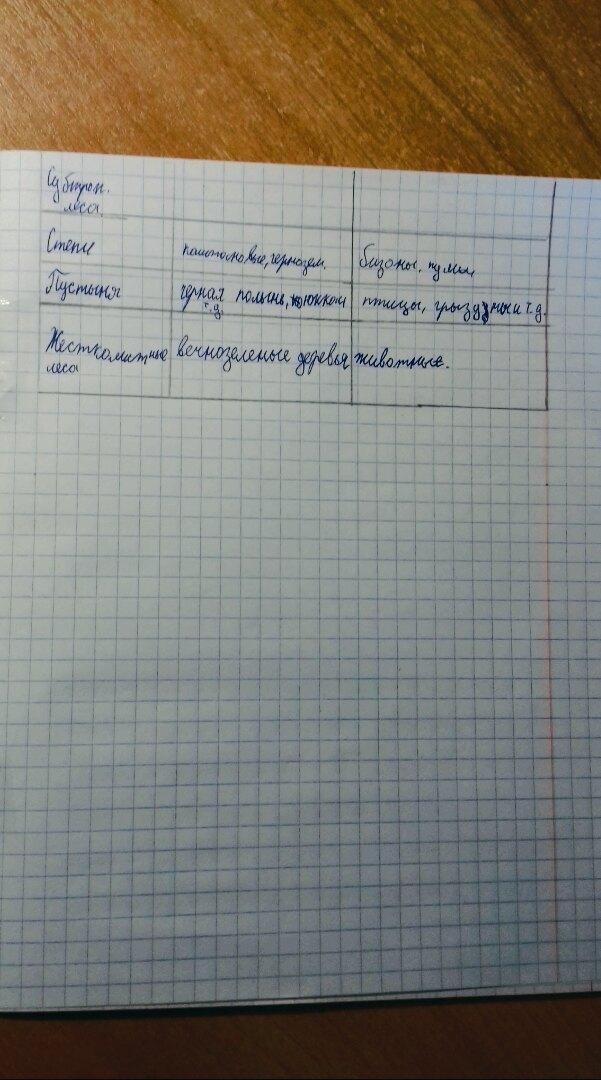 Субтроп.
леса.
Степи каштановые, чернозем. бизоны, пумы
Пустыня черная полынь, юкка и птицы, грызуны и т.д.
т.д.
Жестколистные вечнозеленые деревья животные.
леса